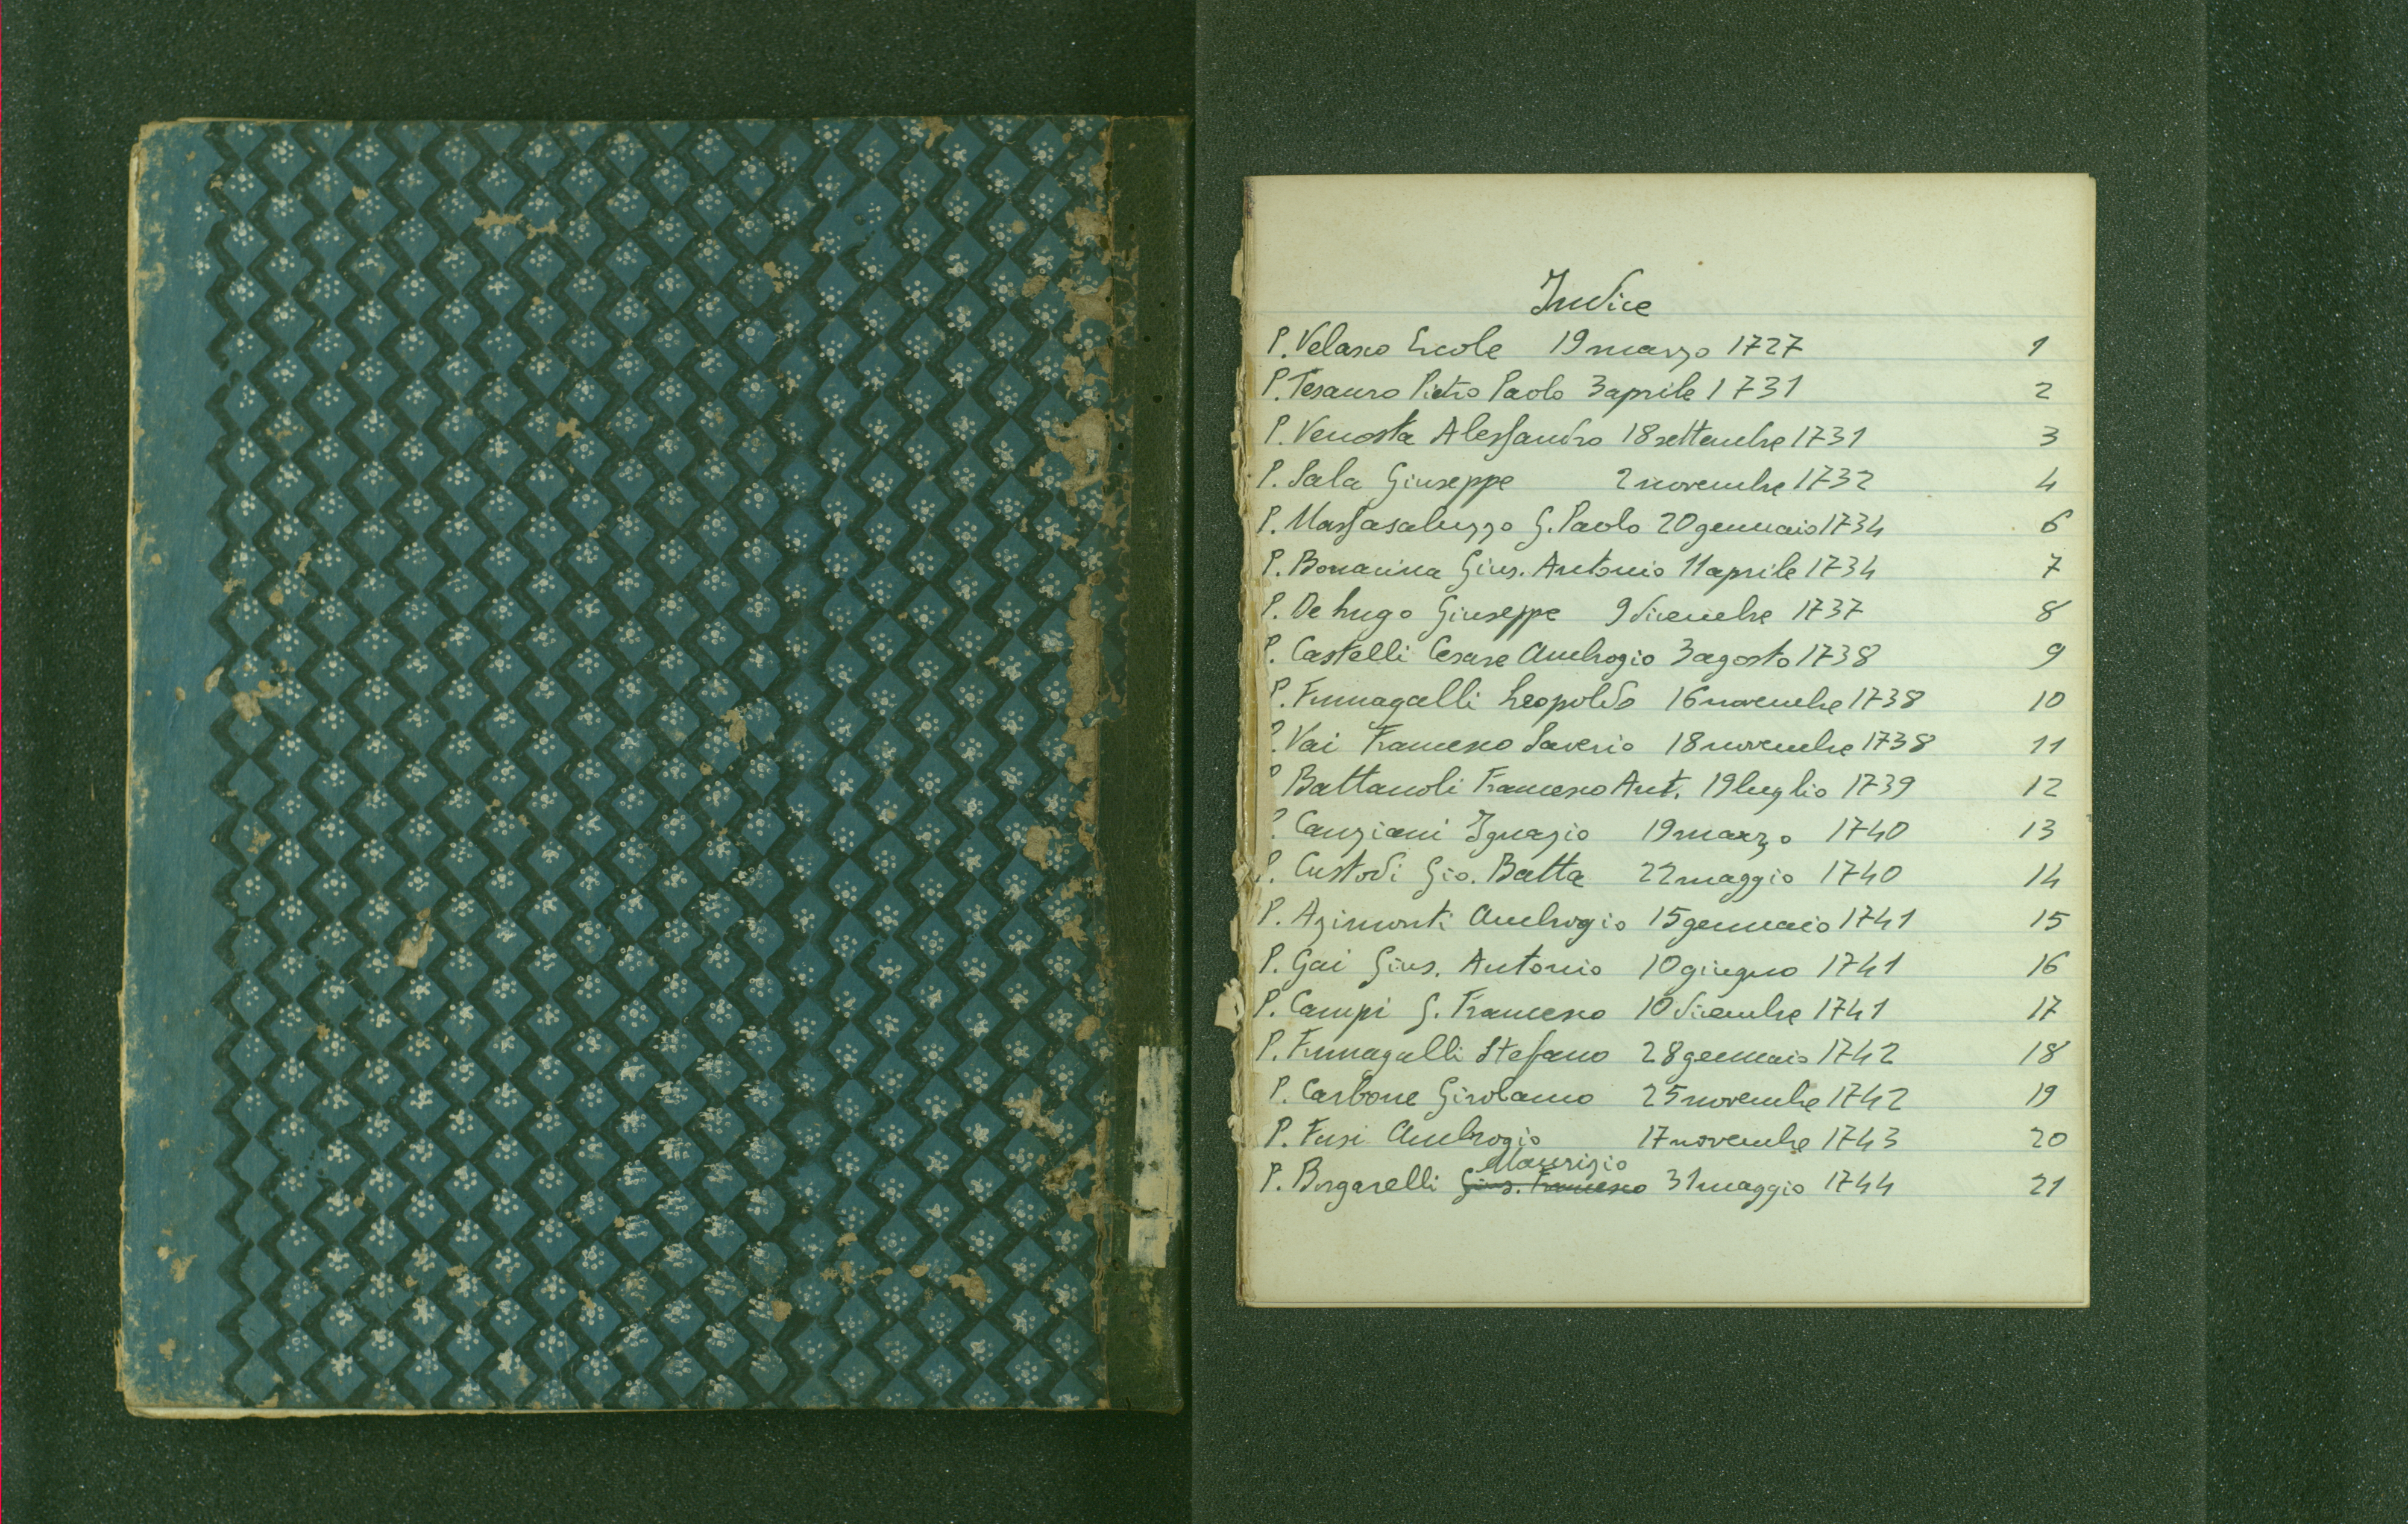 Indice
P. Velasco Ercole 19 marzo 1727 1
P. Tesauro Pietro Paolo 3 aprile 1731 2
P. Venosta Alessandro 18 settembre 1731 3
P. Sala Giuseppe 2 novembre 1732 4
P. Massasaluzzo G. Paolo 20 gennaio 1734 6
P. Bonacina Gius. Antonio 11 aprile 1734 7
P. De Lugo Giuseppe 9 dicembre 1737 8
P. Castelli Cesare Ambrogio 3 agosto 1738 9
P. Fumagalli Leopoldo 16 novembre 1738 10
P. Vai Francesco Saverio 18 novembre 1738 11
P Battanoli Francesco Ant. 19 luglio 1739 12
P. Canziani Ignazio 19 marzo 1740 13
P. Custodi Gio. Batta 22 maggio 1740 14
P. Azimonti Ambrogio 15 gennaio 1741 15
P. Gai Gius. Antonio 10 giugno 1741 16
P. Campi G. Francesco 10 dicembre 1741 17
P. Fumagalli Stefano 28 gennaio 1742 18
P. Carbone Girolamo 25 novembre 1742 19
P. Fusi Ambrogio 17 novembre 1743 20
Maurizio
P. Borgarelli Gius. Francesco 31 maggio 1744 21